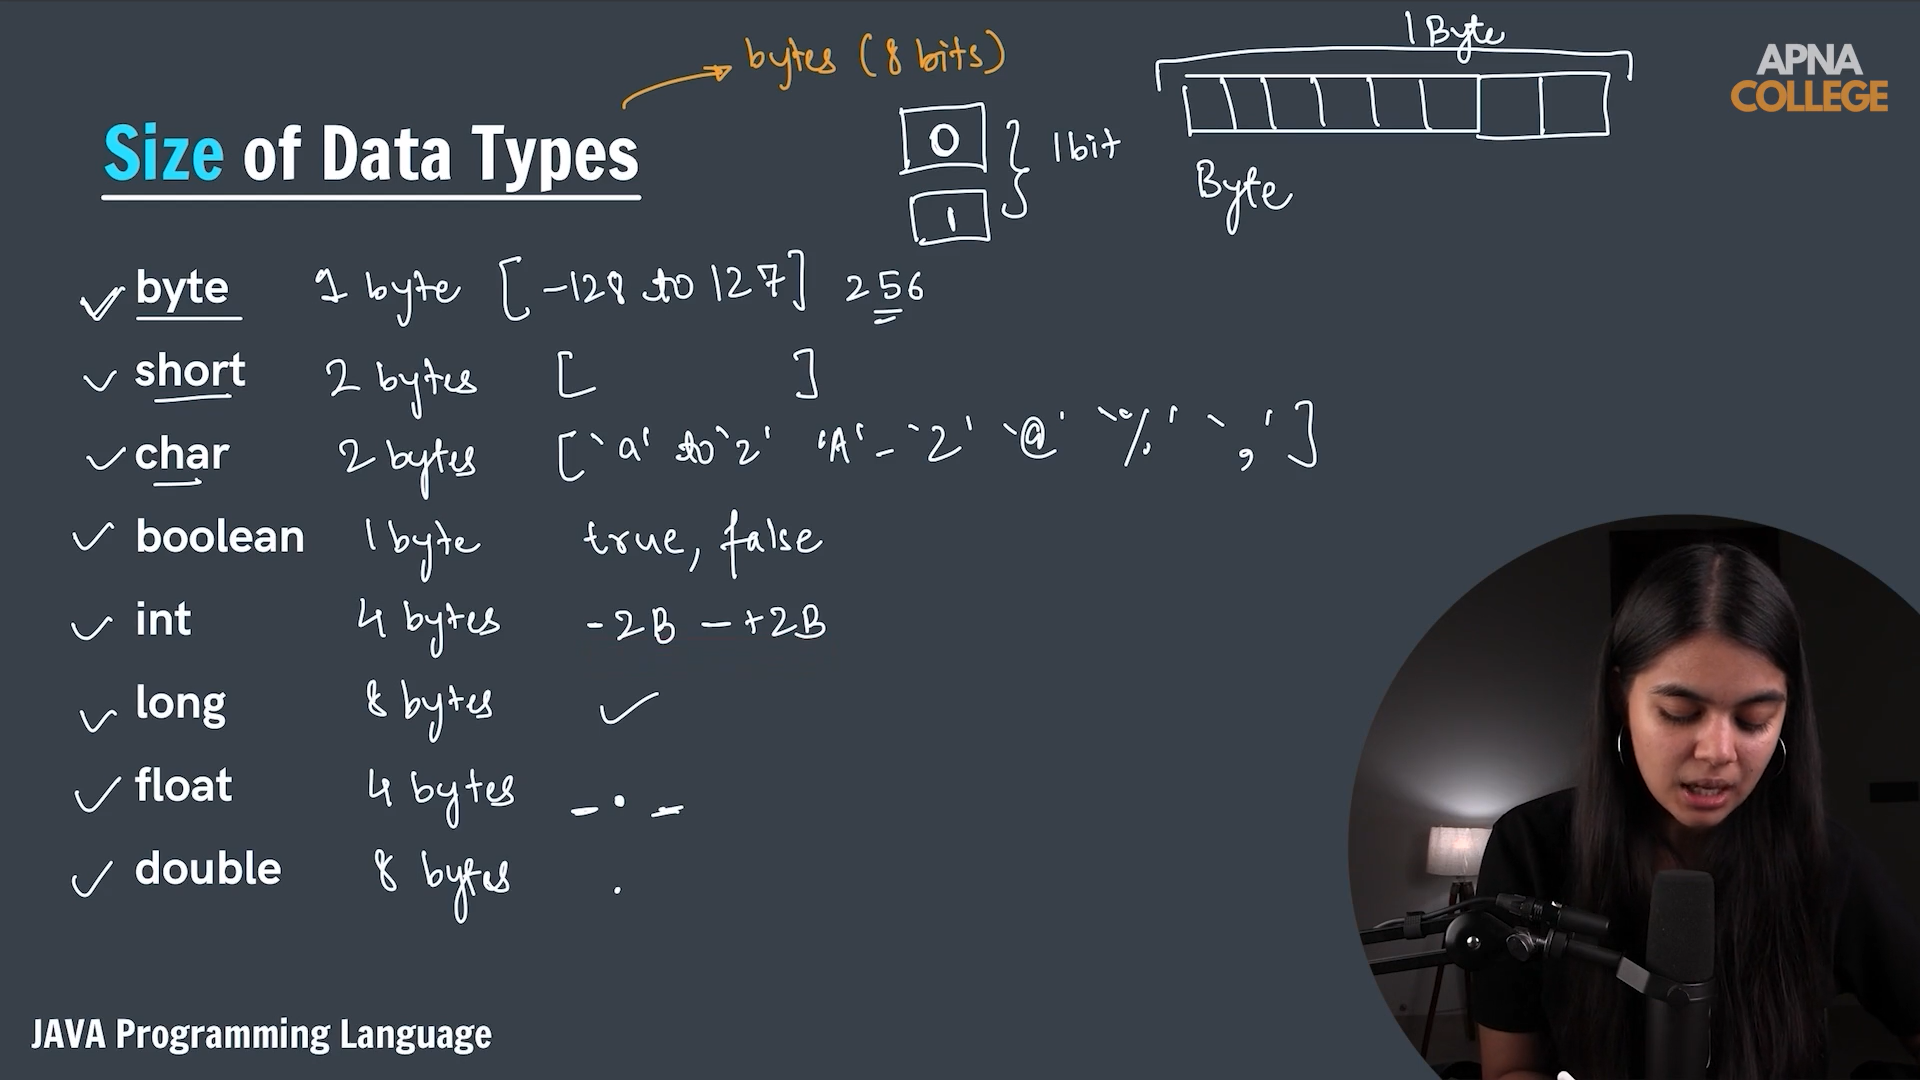 bytes (8 bits)
1 Byte
APNA
COLLEGE
Size of Data Types
0
1
1 bit
Byte
byte 1 byte [-128 to 127] 256
short 2 bytes [ ]
char 2 bytes ['a' to 'z' 'A' - 'Z' '@' '%' ',']
boolean 1 byte true, false
int 4 bytes -2B - +2B
long 8 bytes
float 4 bytes _._
double 8 bytes .
JAVA Programming Language